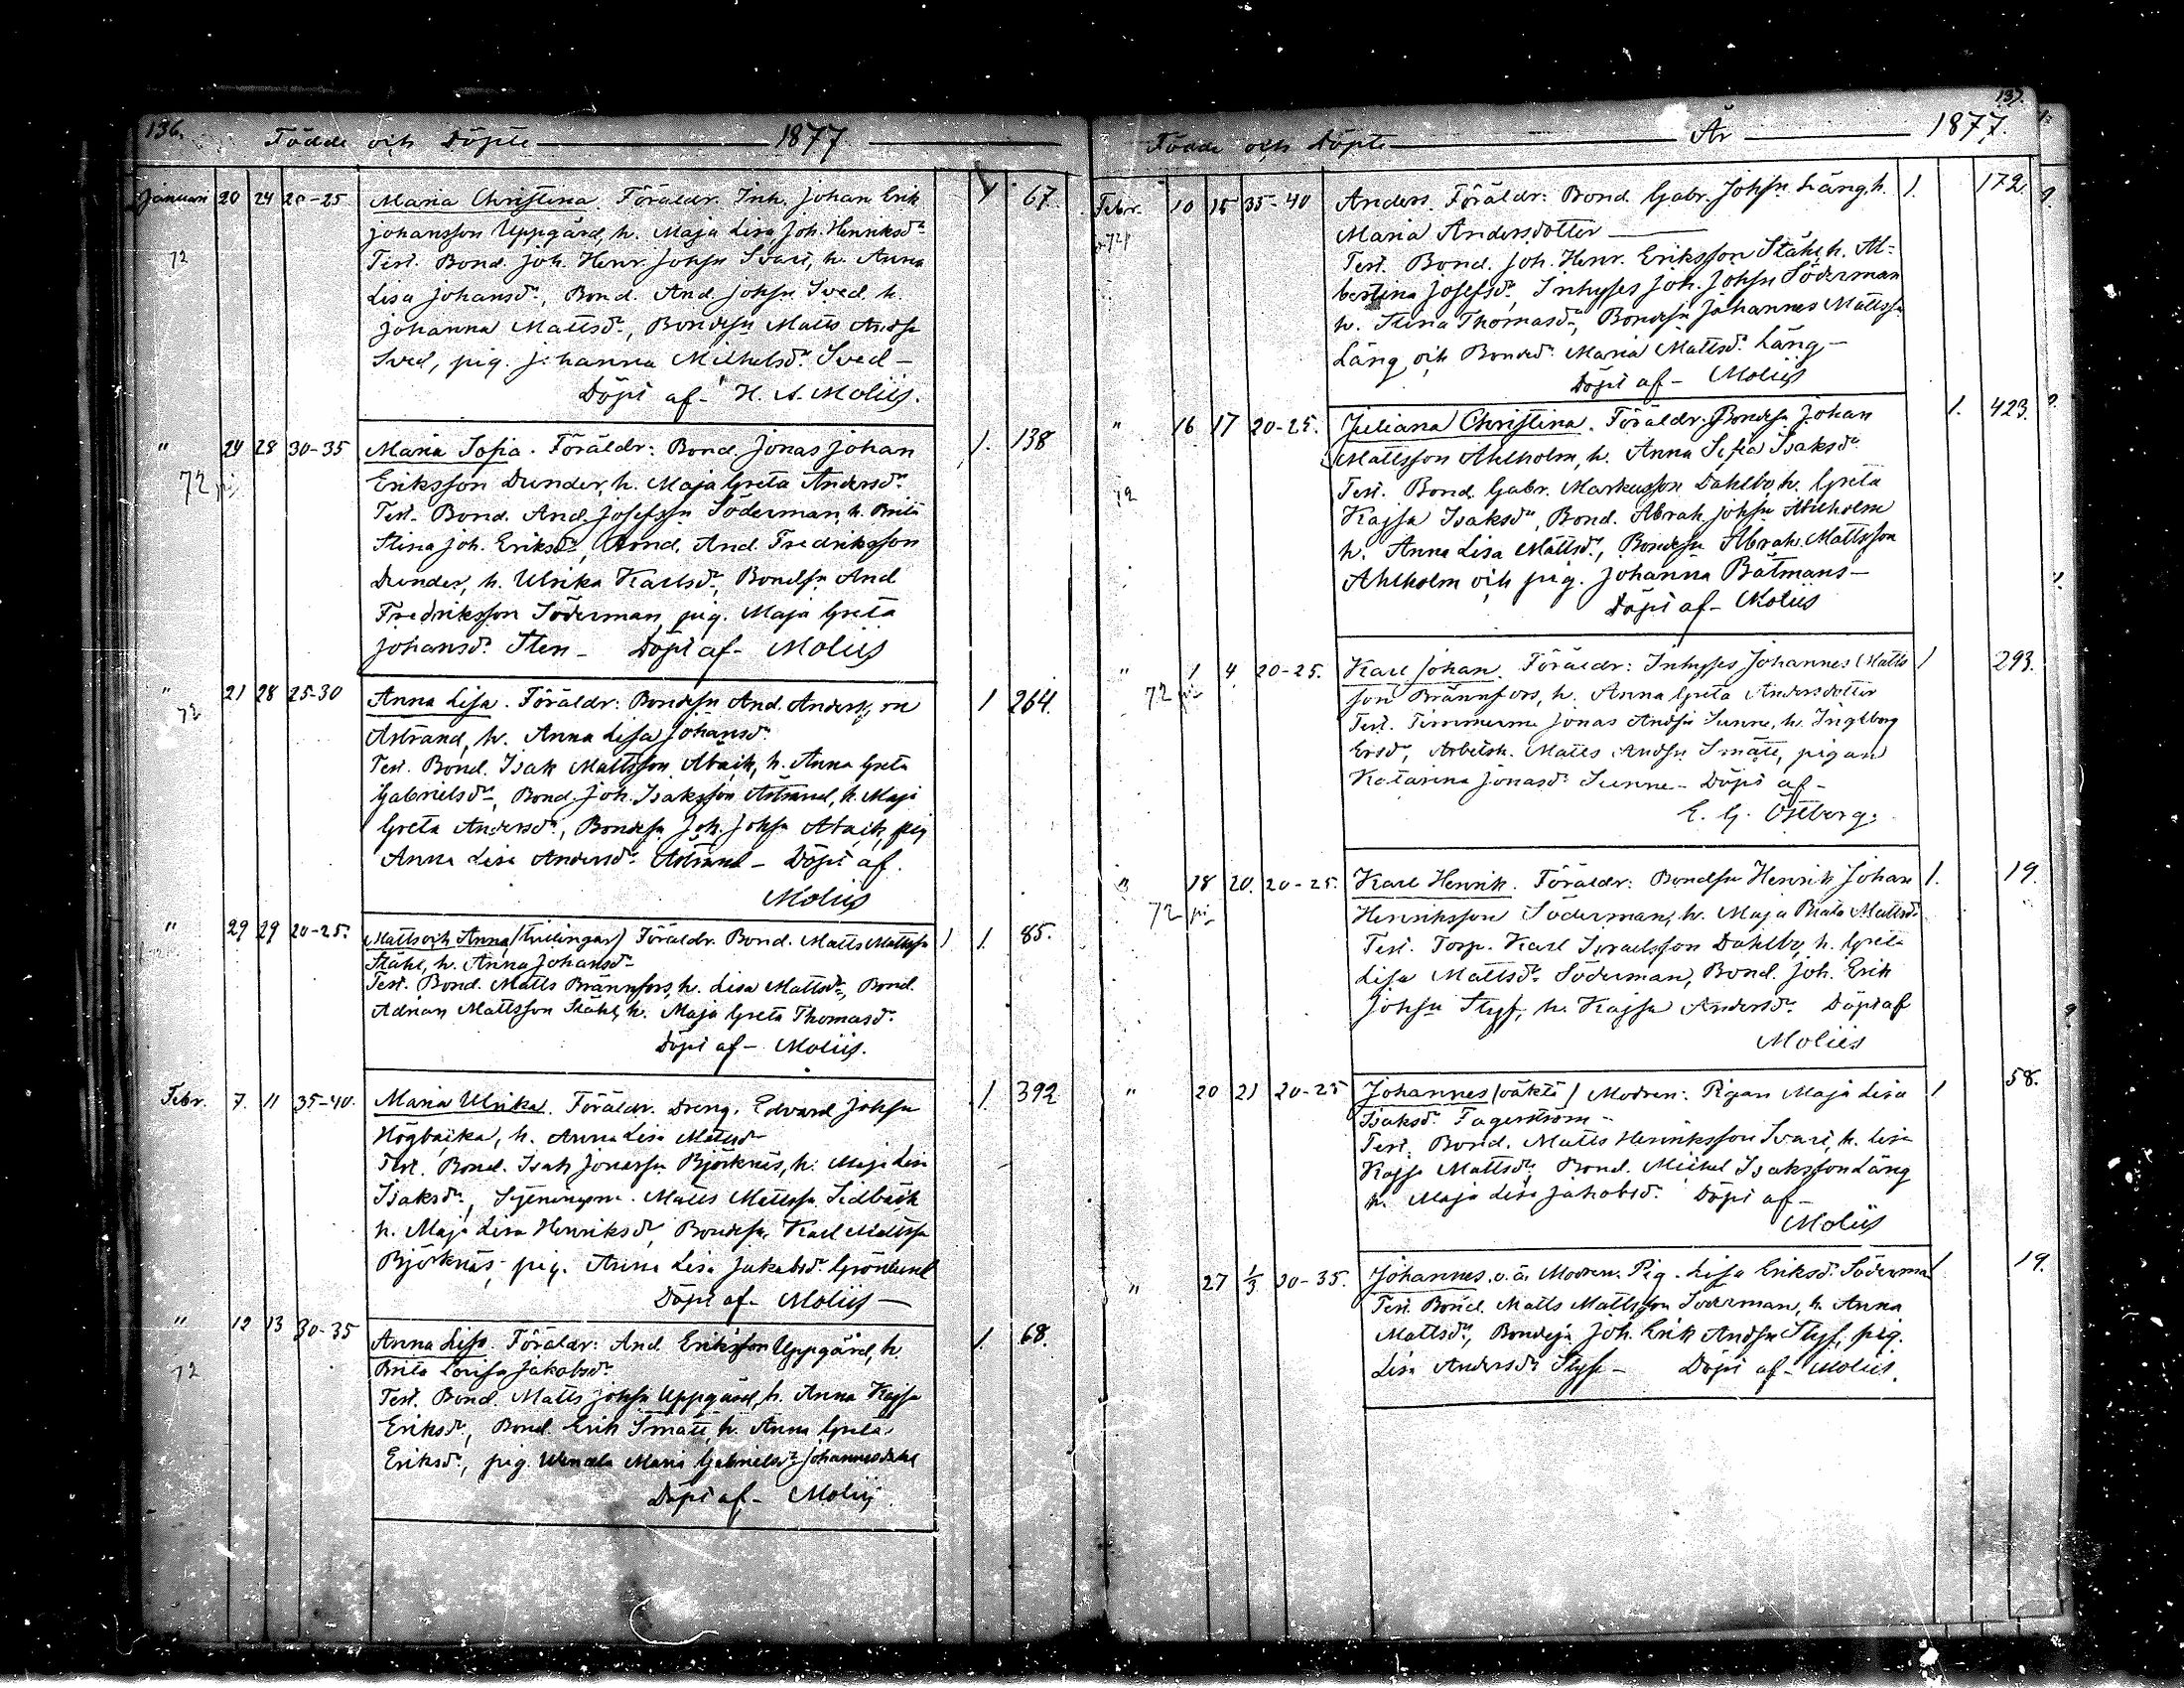 136.
Födde och Döpte 1877
Januari 20 24 20-25 Maria Christina. Föräldr. Inh. Johan Erik 1 67.
Johansson Uppgård, h. Maja Lisa Joh. Henriksdr
72 Test. Bond. Joh. Henr. Johsn Svari, h. Anna
Lisa Johansdr, Bond. And. Johsn Sved h.
Johanna Mattsdr, Bondesn Matts Andsn
Sved, pig. Johanna Michelsdr Sved -
Döpt af - H. A. Moliis.
" 24 28 30-35 Maria Sofia. Föräldr: Bond. Jonas Johan 1. 138
72 Eriksson Dunder, h. Maja Greta Andersdr
Test. Bond. And. Josefsson Söderman, h. Brita
Stina Joh. Eriksdr, Bond. And. Fredriksson
Dunder, h. Ulrika Karlsdr, Bondsn And
Fredriksson Söderman, pig. Maja Greta
Johansdr Sten - Döpt af - Moliis
" 21 28 25-30 Anna Lisa. Föräldr: Bondesn And. Andersson 1 264.
72 Åstrand, h. Anna Lisa Johansdr
Test. Bond. Isak Mattsson Abaik, h. Anna Greta
Gabrielsdr, Bond. Joh. Isaksson Åstrand, h. Maja
Greta Andersdr, Bondesn Joh. Johsn Abaik, pig
Anna Lisa Andersdr Åstrand - Döpt af.
Moliis
" 29 29 20-25. Matts och Anna (tvilingar) Föräldr. Bond. Matts Mattsson 1 1. 85.
Ståhl, h. Anna Johansdr
Test. Bond. Matts Brännfors, h. Lisa Mattsdr, Bond.
Adrian Mattsson Ståhl, h. Maja Greta Thomasdr.
Döpt af - Moliis.
Febr. 7. 11 35-40. Maria Ulrika. Föräldr. Dreng. Edvard Johsn 1. 392
Högbacka, h. Anna Lisa Mattsd
Test. Bond. Isak Jonassn Björknäs, h. Maja Lisa
Isaksdr, Matts Mattssn Sidbäck
h. Maja Lisa Henriksdr, Bondesn. Karl Mattssn
Björknäs, pig. Anna Lisa Jakobsdr Grönlund
Döpt af - Moliis -
" 12 13 30-35 Anna Lisa. Föräldr: And. Eriksson Uppgård, h 1. 68.
72 Brita Lovisa Jakobsdr
Test. Bond. Matts Johsn Uppgård, h. Anna Kajsa
Eriksdr, Bond. Erik Smått, h. Anna Greta
Eriksdr, pig. Wendla Maria Gabrielsdr Johannesdahl
Döpt af - Moliis.
137.
Födde och Döpte År 1877.
Febr. 10 15 35-40 Anders. Föräldr: Bond. Gabr. Johsn Läng, h. 1. 172
Maria Andersdotter
Test. Bond. Joh. Henr. Eriksson Ståhl, h. Al-
bertina Josefsdr, Inhyses Joh. Johsn Söderman
h. Stina Thomasdr, Bondesn Johannes Mattssn
Läng och Bondedr. Maria Mattsdr. Läng -
Döpt af - Moliis
" 16 17 20-25. Juliana Christina. Föräldr: Bondesn Johan 1. 423.
Mattsson Ahlholm, h. Anna Sofia Isaksdr
72 Test. Bond. Gabr. Markusson Dahlbo, h. Greta
Kajsa Isaksdr, Bond. Abrah. Johsn Ahlholm
h. Anna Lisa Mattsdr, Bondesn Abrah. Mattsson
Ahlholm och pig. Johanna Båtmans -
Döpt af - Moliis
" 1 4 20-25. Karl Johan. Föräldr: Inhyses Johannes Matts 1 293.
72 son Brännfors, h. Anna Greta Andersdotter
Test. Timmerm. Jonas Andsn Sunne, h. Ingeborg
Ersdr, Arbetsk. Matts Andsn Smått, pigan
Katarina Jonasdr Sunne - Döpt af -
E. G. Östberg.
" 18 20. 20-25. Karl Henrik. Föräldr: Bondsn Henrik Johan 1. 19.
72 Henriksson Söderman, h. Maja Beata Mattsdr.
Test. Torp. Karl Israelsson Dahlbo, h. Greta
Lisa Mattsdr Söderman, Bond. Joh. Erik
Johsn Styf, h. Kajsa Andersdr Döpt af
Moliis
" 20 21 20-25 Johannes (oäkta) Modren: Pigan Maja Lisa 1 58.
Isaksdr Fagerström -
Test. Bond. Matts Henriksson Svari, h. Lisa
Kajsa Mattsdr, Bond. Mickel Isaksson Läng
h. Maja Lisa Jakobsdr. Döpt af -
Moliis
" 27 1/3 30-35. Johannes. o.ä. Modren. Pig. Lisa Eriksdr Söderman 1 19.
Test. Bond. Matts Mattsson Söderman, h. Anna
Mattsdr, Bondesn Joh. Erik Andsn Styf, pig.
Lisa Andersdr Styf - Döpt af - Moliis.